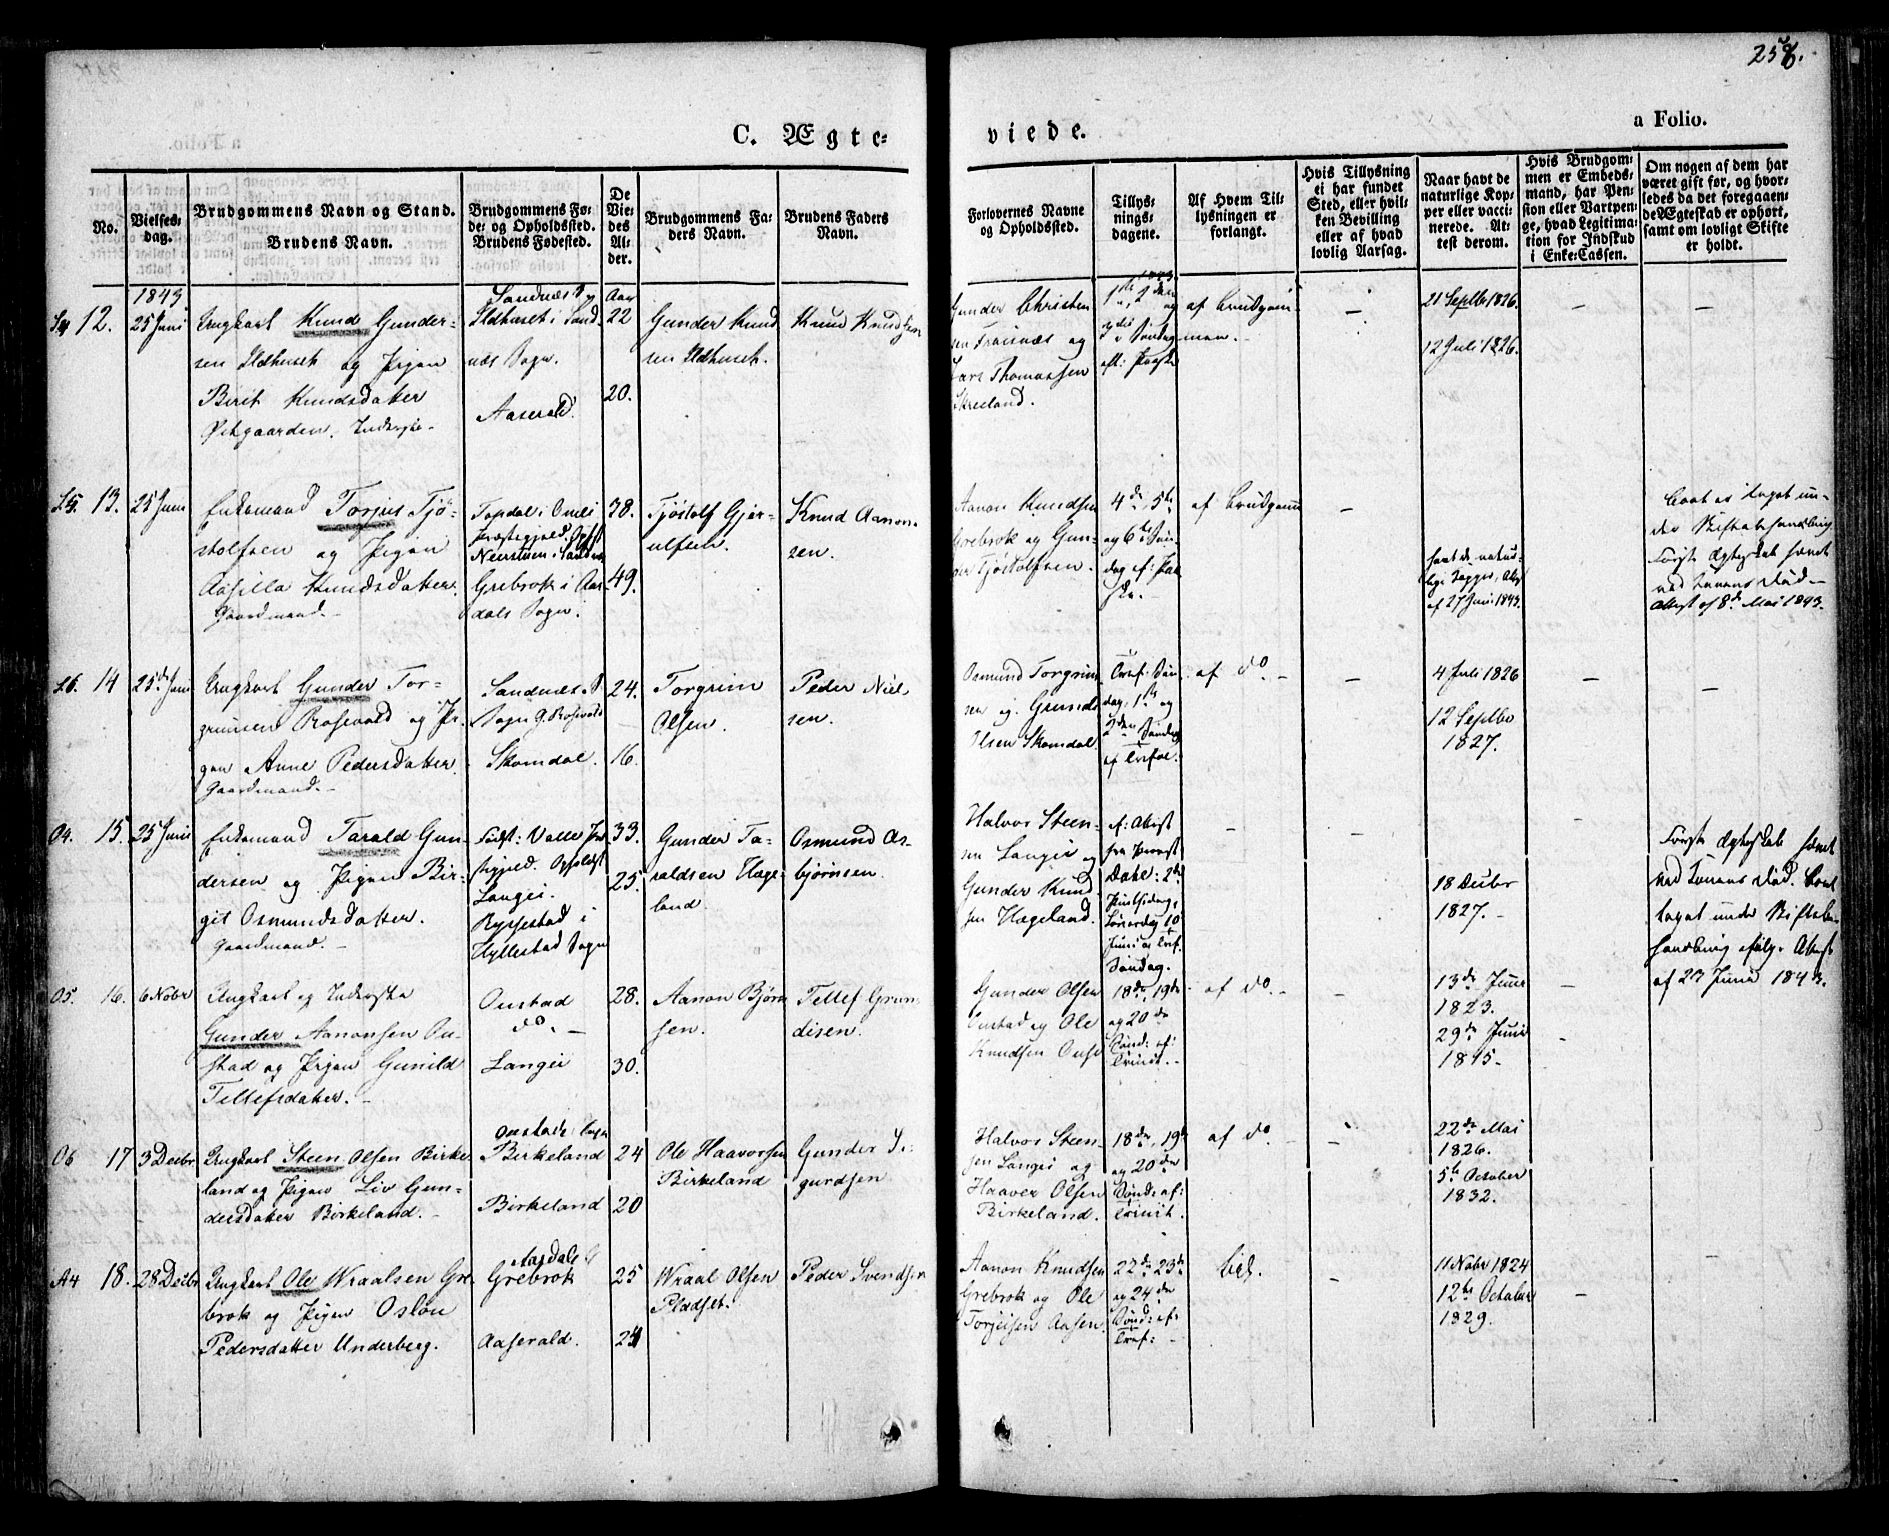 258.
C. Ægte=
viede.
a Folio.
No.
Vielses=
dag.
Brudgommens Navn og Stand.
Brudens Navn.
Brudgommens Fø=
de= og Opholdssted.
Brudens Fødested.
De
Vie=
des
Al=
der.
Brudgommens Fa=
ders Navn.
Brudens Faders
Navn.
Forlovernes Navne
og Opholdssted.
Tillys=
nings=
dagene.
Af Hvem Til=
lysningen er
forlangt.
Hvis Tillysning
ei har fundet
Sted, eller hvil=
ken Bevilling
eller af hvad
lovlig Aarsag.
Naar havt de
naturlige Kop=
per eller vacci=
nerede. At=
test derom.
Hvis Brudgom=
men er Embeds=
mand, har Pen=
sion eller Vartpen=
ge, hvad Legitima=
tion for Indskud
i Enke=Cassen.
Om nogen af dem har
været gift før, og hvor=
ledes da det foregaaen=
de Ægteskab er ophørt,
samt om lovligt Skifte
er holdt.
1843
12.
25 Juni
Ungkarl Knud Gunder-
sen Ildhuset og Pigen
Birit Knudsdatter
Østgaarden.
Sandnæs S
Ildhuset i Sand-
næs Sogn.
Aaserald.
Aar
22
20.
Gunder Knud
sen Ildhuset.
Knud Knudsen
Gunder Christen
sen Frøisnæs og
Lars Thomassen
Skreeland.
1ste, 2den og
3die Søndag
eft: Paaske
af Brudgom
men.
21 Septbr 1826.
12 Juli 1826.
13.
25 Juni
Enkemand Torjus Tjø-
stolfsen og Pigen
Aasilla Knudsdatter.
Gaardmand.
Topdal i Omli
Præstegjeld,
Grebrok i Aas-
dals Sogn.
38.
49.
Tjøstolf Gjer-
ulfsen.
Knud Aanon-
sen.
Aanon Knudsen
Grebrok og Gun-
der Tjøstolfsen.
4de, 5te
og 6te Søn-
dag ef: Paa-
ske.
af Brudgom
havt de natur-
lige Kopper, Attest
af 27 Juni 1843.
Boet er taget un-
der Skiftebehandling
Første Ægteskab hævet
ved Konens Død
Attest af 8de Mai 1843.
14
25de Juni
Ungkarl Gunder Tor-
grimsen Rosevold og Pi-
gen Anne Pedersdatter.
Gaardmand.
Sandnæs
Sogn G. Rosevold
Skomdal.
24.
16.
Torgrim
Olsen.
Peder Niel
sen.
Osmund Torgrim
sen og Grunde
Olsen Skomdal.
Tref: Søn-
dag, 1ste og
2den Søndag
ef Trefol.
af do.
4 Juli 1826
12 Septbr
1827.
O4.
15.
25 Juni
Enkemand Tarald Gun-
dersen og Pigen Bir-
git Osmundsdatter.
Gaardmand.
Født: Valle Præ
stegjeld. Opholdst
Langei.
Ryssestad i
Hyllestad Sogn
33.
25.
Gunder Ta-
raldsen Hæge-
land.
Osmund As-
bjørnsen.
Halvor Steen-
sen Langei og
Gunder Knud
sen Hægeland.
ef: Attest
fra Præst
Dahl: 2de
Pintsedag,
Løverdag 10
Juni og Tref.
Søndag.
18 Decbr
1827.
Første Ægteskab hævet
ved Konens Død. Boet
taget under Skiftebe-
handling ifølge Attest
af 23 Juni 1843.
O5.
16.
6 Nobr
Ungkarl og Inderste
Gunder Aanonsen On-
stad og Pigen Gunild
Tellefsdatter.
Onstad
do.
Langei
28.
30.
Aanon Bjørn
sen.
Tellef Grun
disen.
Gunder Olsen
Onstad og Ole
Knudsen Ouse
18de, 19de
og 20de
Sønd: ef:
Trinit.
af do.
13de Juni
1823.
29de Juni
1815.
O6
17
3 Decbr
Ungkarl Steen Olsen Birke
land og Pigen Liv Gun-
dersdatter Birkeland.
Onstads Sogn
Birkeland
Birkeland
24
20
Ole Haavorsen
Birkeland
Gunder Si-
gurdsen
Halvor Steen-
sen Langei og
Haaver Olsen
Birkeland.
18de, 19de
og 20de
Sønd: ef:
Trinit.
af do.
22de Mai
1826.
5te October
1832.
A4
18.
28 Decbr
Ungkarl Ole Wraalsen Gre-
brok og Pigen Osløu
Pedersdatter Underberg.
Aasdals
Grebrok
Aaserald.
25
24
Wraal Olsen
Pladset.
Peder Svendsen
Aanon Knudsen
Grebrok og Ole
Torjeisen Aasen.
22de 23de
og 24de
Sønd: ef:
Tref:
lid.
11 Nobr 1824
12te October
1829.